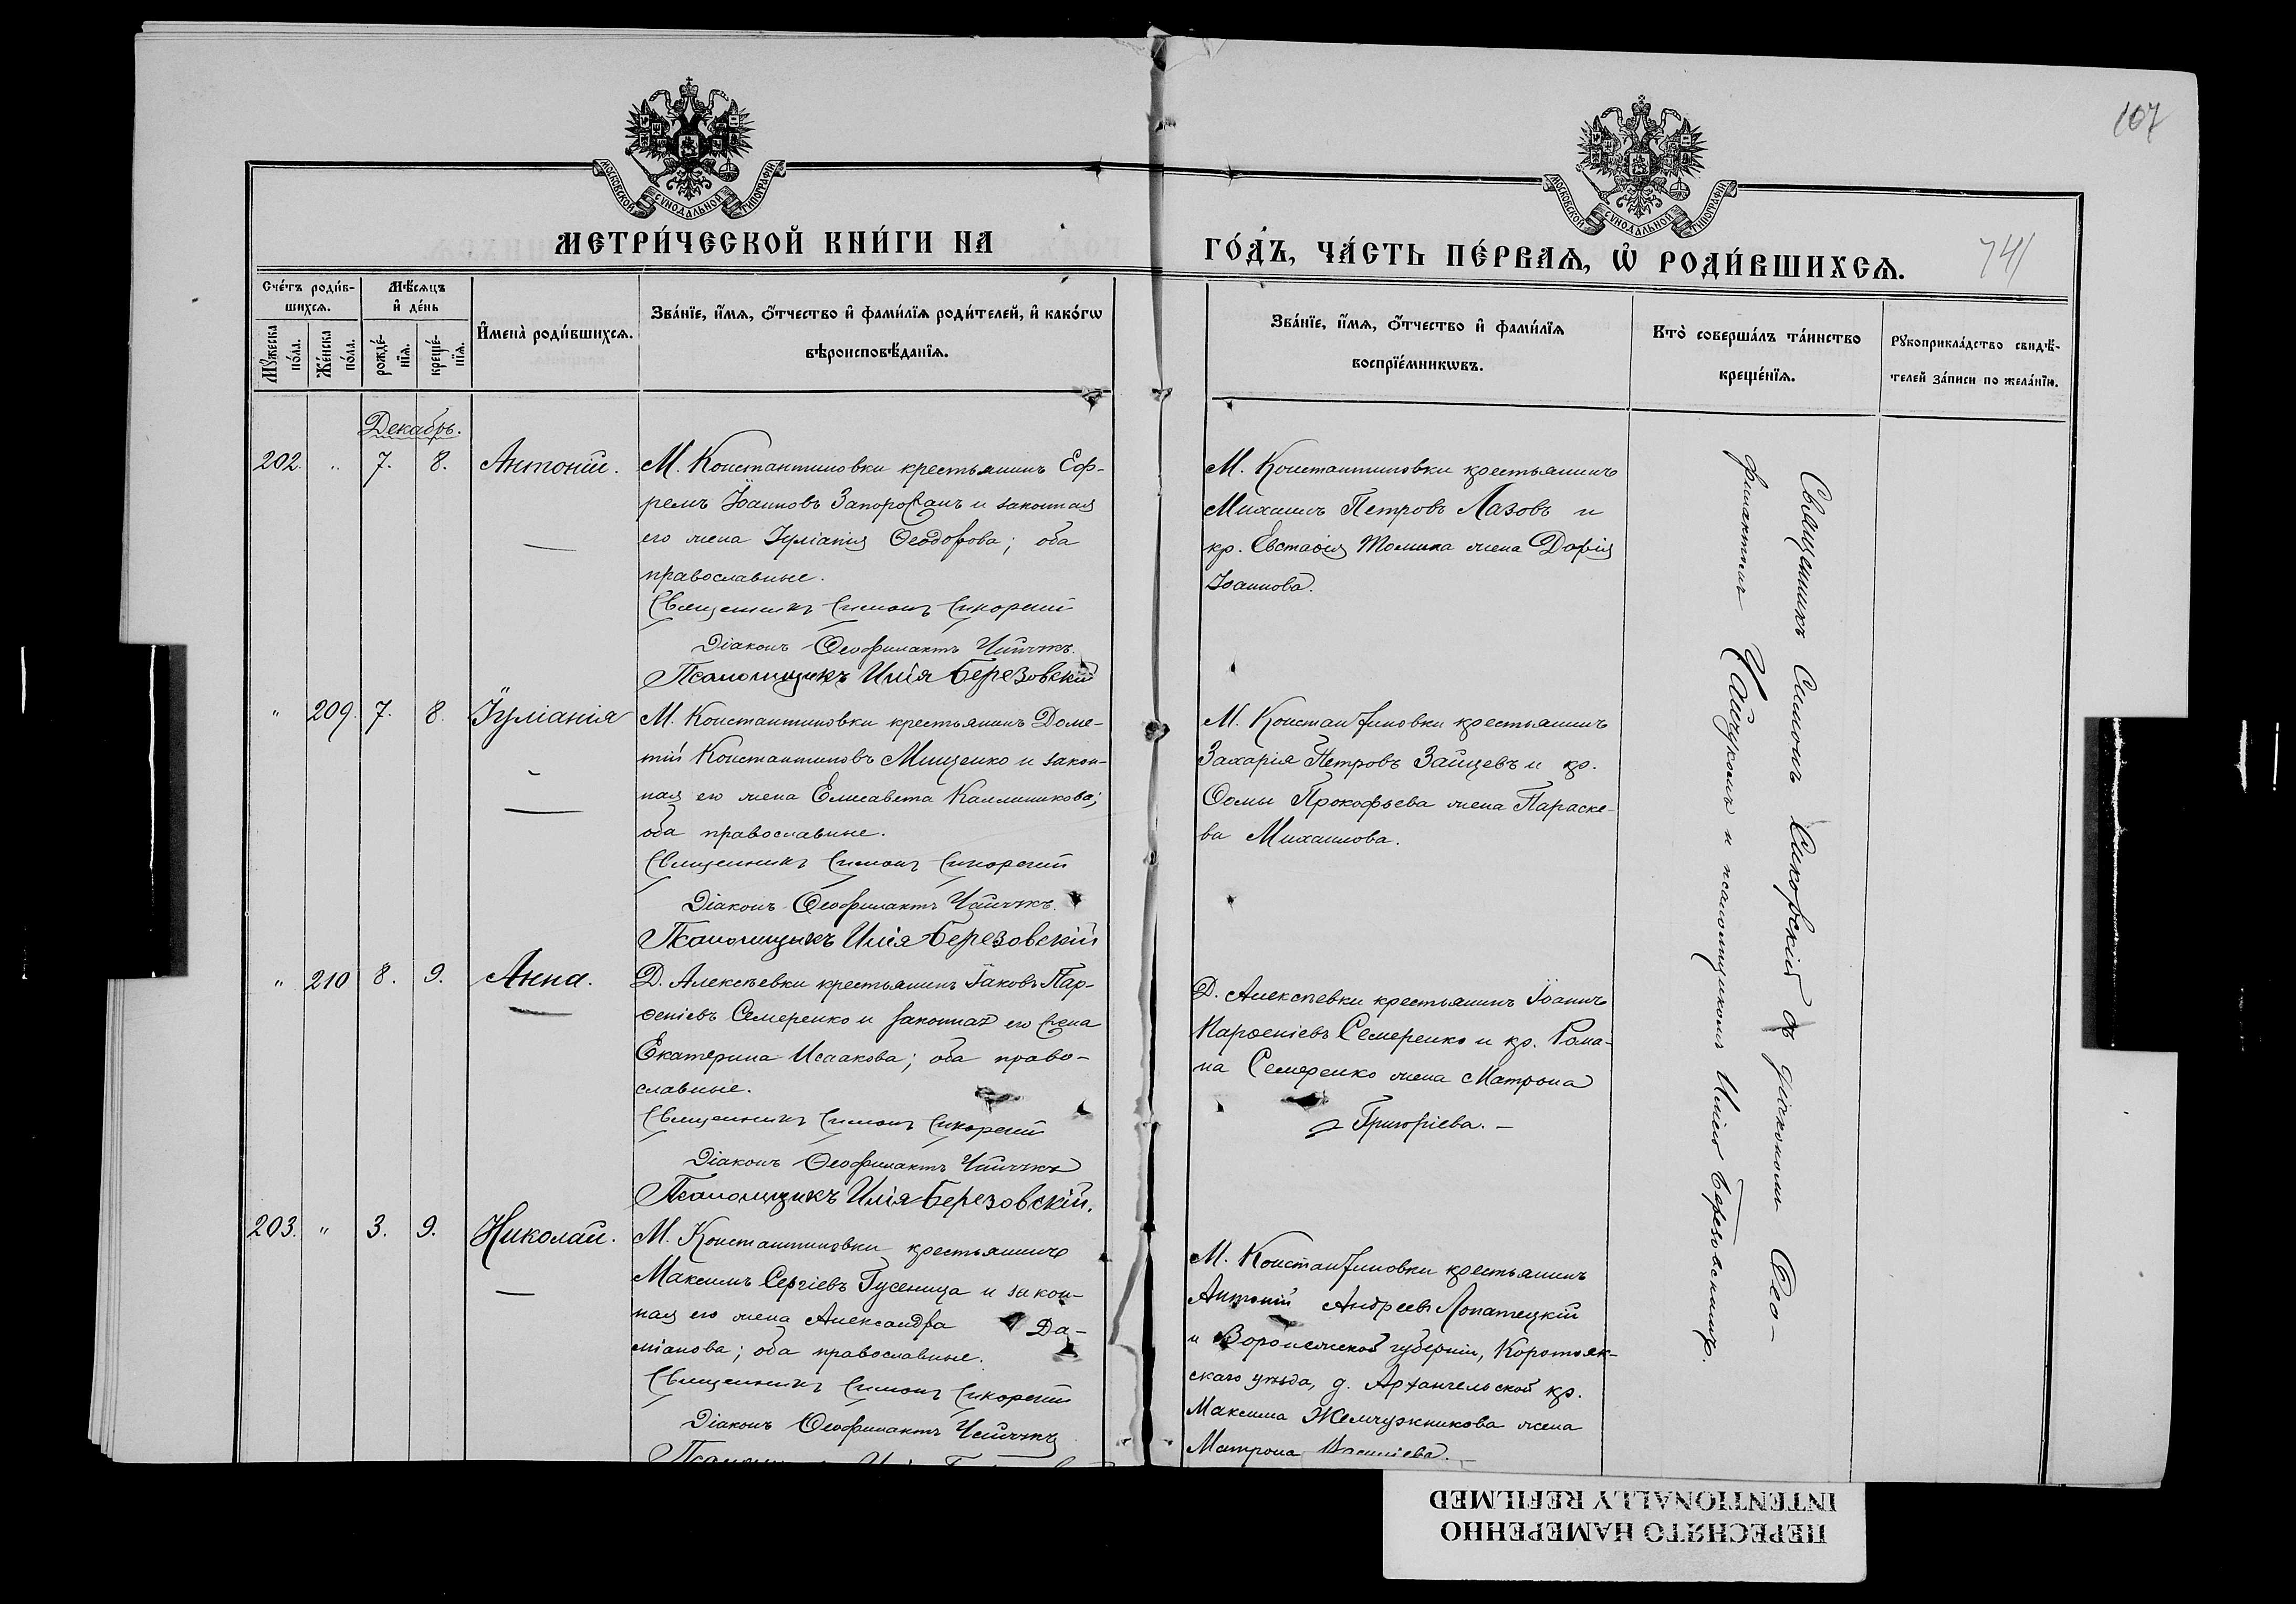 107
МОСКОВСКОЙ СѴНОДАЛЬНОЙ ТИПОГРАФІИ
МОСКОВСКОЙ СѴНОДАЛЬНОЙ ТИПОГРАФІИ
МЕТРИ́ЧЕСКОЙ КНИ́ГИ НА
ГО́ДЪ, ЧА́СТЬ ПЕ́РВАѦ, Ѡ҆ РОДИ́ВШИХСѦ.
741
Сче́тъ роди́в-
шихсѧ.
Мꙋ́жеска
по́ла.
Же́нска
по́ла.
Мѣ́сѧцъ
и҆ де́нь
рожде́-
нїѧ.
креще́-
нїѧ.
И҆мена̀ роди́вшихсѧ.
Зва́нїе, и҆́мѧ, ѻ҆́тчество и҆ фами́лїѧ роди́телей, и҆ како́гѡ
вѣроисповѣ́данїѧ.
Зва́нїе, и҆́мѧ, ѻ҆́тчество и҆ фами́лїѧ
воспрїе́мникѡвъ.
Кто̀ соверша́лъ та́инство
креще́нїѧ.
Рꙋкоприкла́дство свидѣ́-
телей за́писи по жела́нїю.
Декабрь.
202. " 7. 8. Антоній.
М. Константиновки крестьянинъ Еф-
ремъ Іоанновъ Запорожанъ и законная
его жена Іуліанія Ѳеодорова; оба
православные.
Священникъ Симонъ Сикорскій
Діаконъ Ѳеофилактъ Чайчукъ.
Псаломщикъ Илія Березовскій
М. Константиновки крестьянинъ
Михаилъ Петровъ Лазовъ и
кр. Евстаѳія Томика жена Дарія
Іоаннова.
" 209. 7. 8. Іуліанія
М. Константиновки крестьянинъ Доме-
тій Константиновъ Мищенко и закон-
ная его жена Елисавета Каллиникова;
оба православные.
Священникъ Симонъ Сикорскій
Діаконъ Ѳеофилактъ Чайчукъ.
Псаломщикъ Илія Березовскій
М. Константиновки крестьянинъ
Захарія Петровъ Зайцевъ и кр.
Ѳомы Прокофьева жена Параске-
ва Михаилова.
" 210 8. 9. Анна.
Д. Алексѣевки крестьянинъ Іаковъ Пар-
ѳеніевъ Семеренко и законная его жена
Екатерина Исаакова; оба право-
славные.
Священникъ Симонъ Сикорскій
Діаконъ Ѳеофилактъ Чайчукъ
Псаломщикъ Илія Березовскій.
Д. Алексѣевки крестьянинъ Іоаннъ
Парѳеніевъ Семеренко и кр. Рома-
на Семеренко жена Матрона
Григоріева. —
203. " 3. 9. Николай.
М. Константиновки крестьянинъ
Максимъ Сергіевъ Гусеница и закон-
ная его жена Александра Да-
міанова; оба православные.
Священникъ Симонъ Сикорскій
Діаконъ Ѳеофилактъ Чайчукъ
М. Константиновки крестьянинъ
Антоній Андреевъ Лопатецкій
и Воронежской губерніи, Коротояк-
скаго уѣзда, д. Архангельской кр.
Максима Жемчужникова жена
Матрона Василіева. —
Священникъ Симонъ Сикорскій съ діакономъ Ѳео-
филактомъ Чайчукомъ и псаломщикомъ Иліею Березовскимъ.
ПЕРЕСНЯТО НАМЕРЕННО
INTENTIONALLY REFILMED